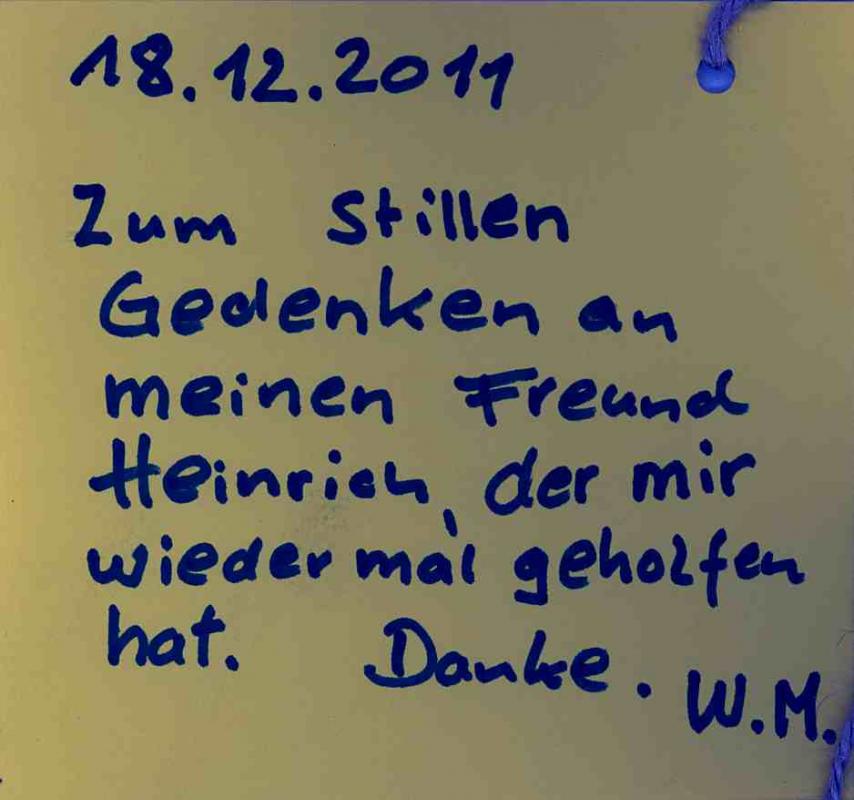 18.12.2011
Zum stillen
Gedenken an
meinen Freund
Heinrich, der mir
wieder mal geholfen
hat. Danke. W.M.